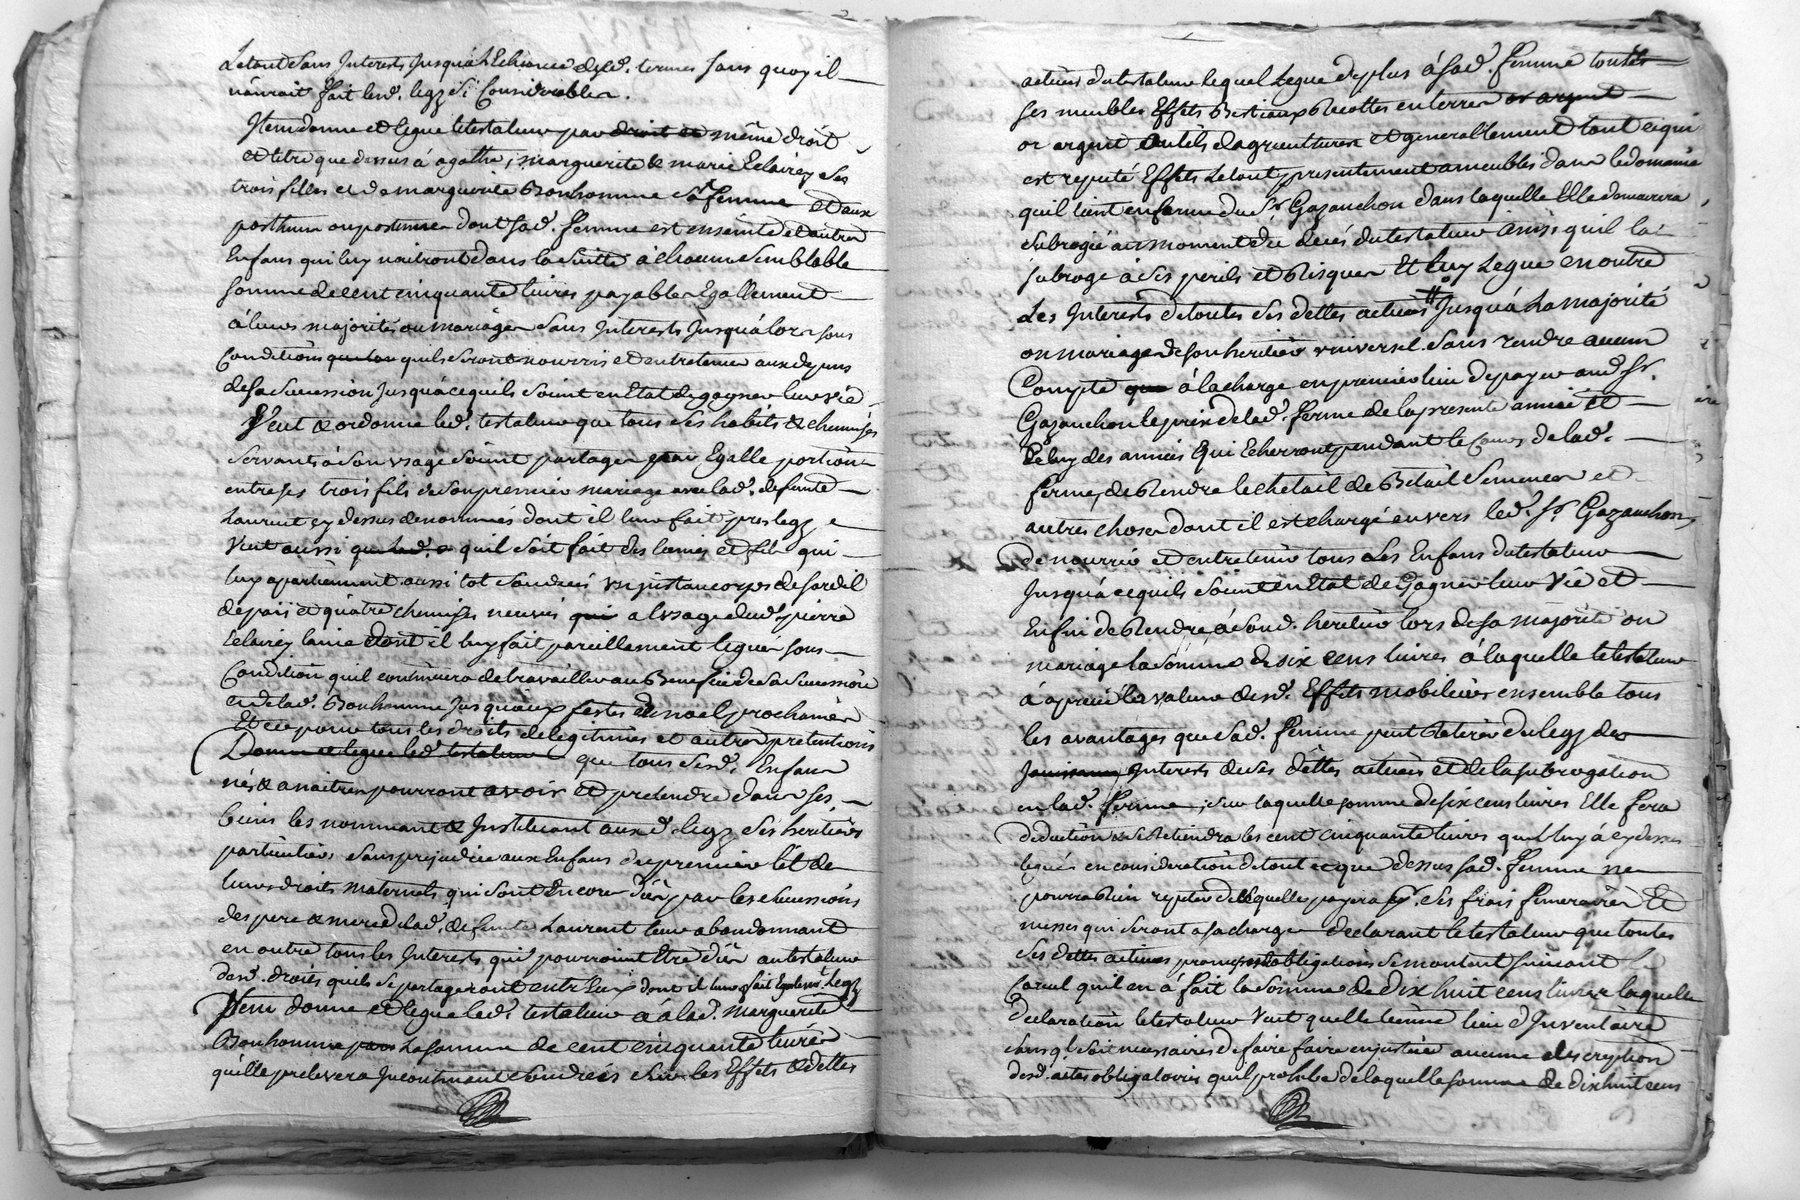 Letout sans Interests Jusquá Lechéance desd. termes sans quoy il
nauroit fait lesd. legz si Considerables.
Item donne et legue letestateur par droit de même droit
et titre que dessus á agathe, marguerite & marie Eclairey ses
trois filles et de marguerite Bonhomme sa femme et aux
posthume ou postumes dont sad. femme est enseinte et autres
Enfans qui luy naitront dans la suitte á chacun semblable
somme de cent cinquante livres payables Egallement
á leurs majorités ou mariages sans Interests Jusquálors sous
Conditions que quils seront nourris et entretenus aux depens
de sa succession Jusquacequils soient en Etat de gagner leur vie
Veut & ordonne led. testateur que tous ses habits & chemises
servants á son usage soient partagés par Egalle portion
entre ses trois fils de son premier mariage avec lad. defunte
Laurent cy dessus denommés dont il leur fait prelegz
Veut aussi que led. quil soit fait des laines et fils qui
luy apartiennent aussi tot son decés un justaucorps de sardil
de païs et quatre chemises neuves qui a lusage dud. pierre
Eclairey lainé dont il luy fait pareillement legue sous
Condition quil continuera de travailler au Benefice de sa succession
et de lad. Bonhomme Jusquaux festes de noel prochaines
Et ce pour tous les droits de legitimes et autres pretentions
Donne et legue led. testateur que tous sesd. Enfans
nés & a naitre pourront avoir et pretendre dans ses
biens les nommant & Instituant auxd. legz ses heritiers
particuliers sans prejudice aux Enfans du premier lit de
leurs droits maternels qui sont encore dûs par les successions
des pere & mere de lad. defunte Laurent leur abandonnant
en outre tous les Interests qui pourroient Etre dûs au testateur
desd. droits quils se partageront entre Eux dont il leur fait Egalemt. Legz
Item donne et legue led. testateur á á lad. marguerite
Bonhomme La somme de cent cinquante livres
quelle prelevera Incontinant son decés sur les Effets & dettes
actives du testateur lequel Legue deplus á sad. femme toutes
ses meubles Effets Bestiaux Recoltes en terres or argent
or argent outils dagriculture et generallement tout cequi
est reputé Effets Letout presentement ameublés dans le domaine
quil tient en ferme du Sr. Gazanchon dans laquelle Elle demeurera
subrogée au moment du decés du testateur ainsi quil la
subroge á ses perils et Risques Et luy Legue en outre
Les Interests detoutes ses dettes actives Jusquá La majorité
ou mariage de son heritier universel sans rendre aucun
Compte que á la charge en premier lieu de payer aud. Sr.
Gazanchon le prix de lad. ferme de la presente année et
celuy des années qui Echerront pendant le Cours de lad.
ferme, de Rendre le cheptail de Betail semences et
autres choses dont il est chargé envers led. Sr. Gazanchon,
De nourrir et entretenir tous ses Enfans du testateur
Jusquácequils soient en Etat de Gagner leur Vie et
Enfin de Rendre á sond. heritier lors de sa majorité ou
mariage la somme de six cens livres á laquelle letestateur
á aprecié la valeur desd. Effets mobiliers ensemble tous
les avantages que sad. femme peut Retirer du legz des
Jouissances Interests de ses dettes actives et de la subrogation
en lad. ferme, sur laquelle somme de six cens livres Elle fera
deduction & Retiendra les cent cinquante livres quil luy á cy dessus
legués en consideration de tout ce que dessus sad. femme ne
pourra Rien repeter desquelles payera ses frais funeraires Et
messes qui seront a sa charge declarant letestateur que toutes
ses dettes actives promesses obligations se montent suivant le
Calcul quil en á fait la somme de dix huit cens livres laquelle
declaration letestateur Veut quelle tienne lieu dInventaire
sans ql. soit necessaires de faire faire en justice aucune description
desd. actes obligatoires quil prohibe de laquelle somme de dix huit cens